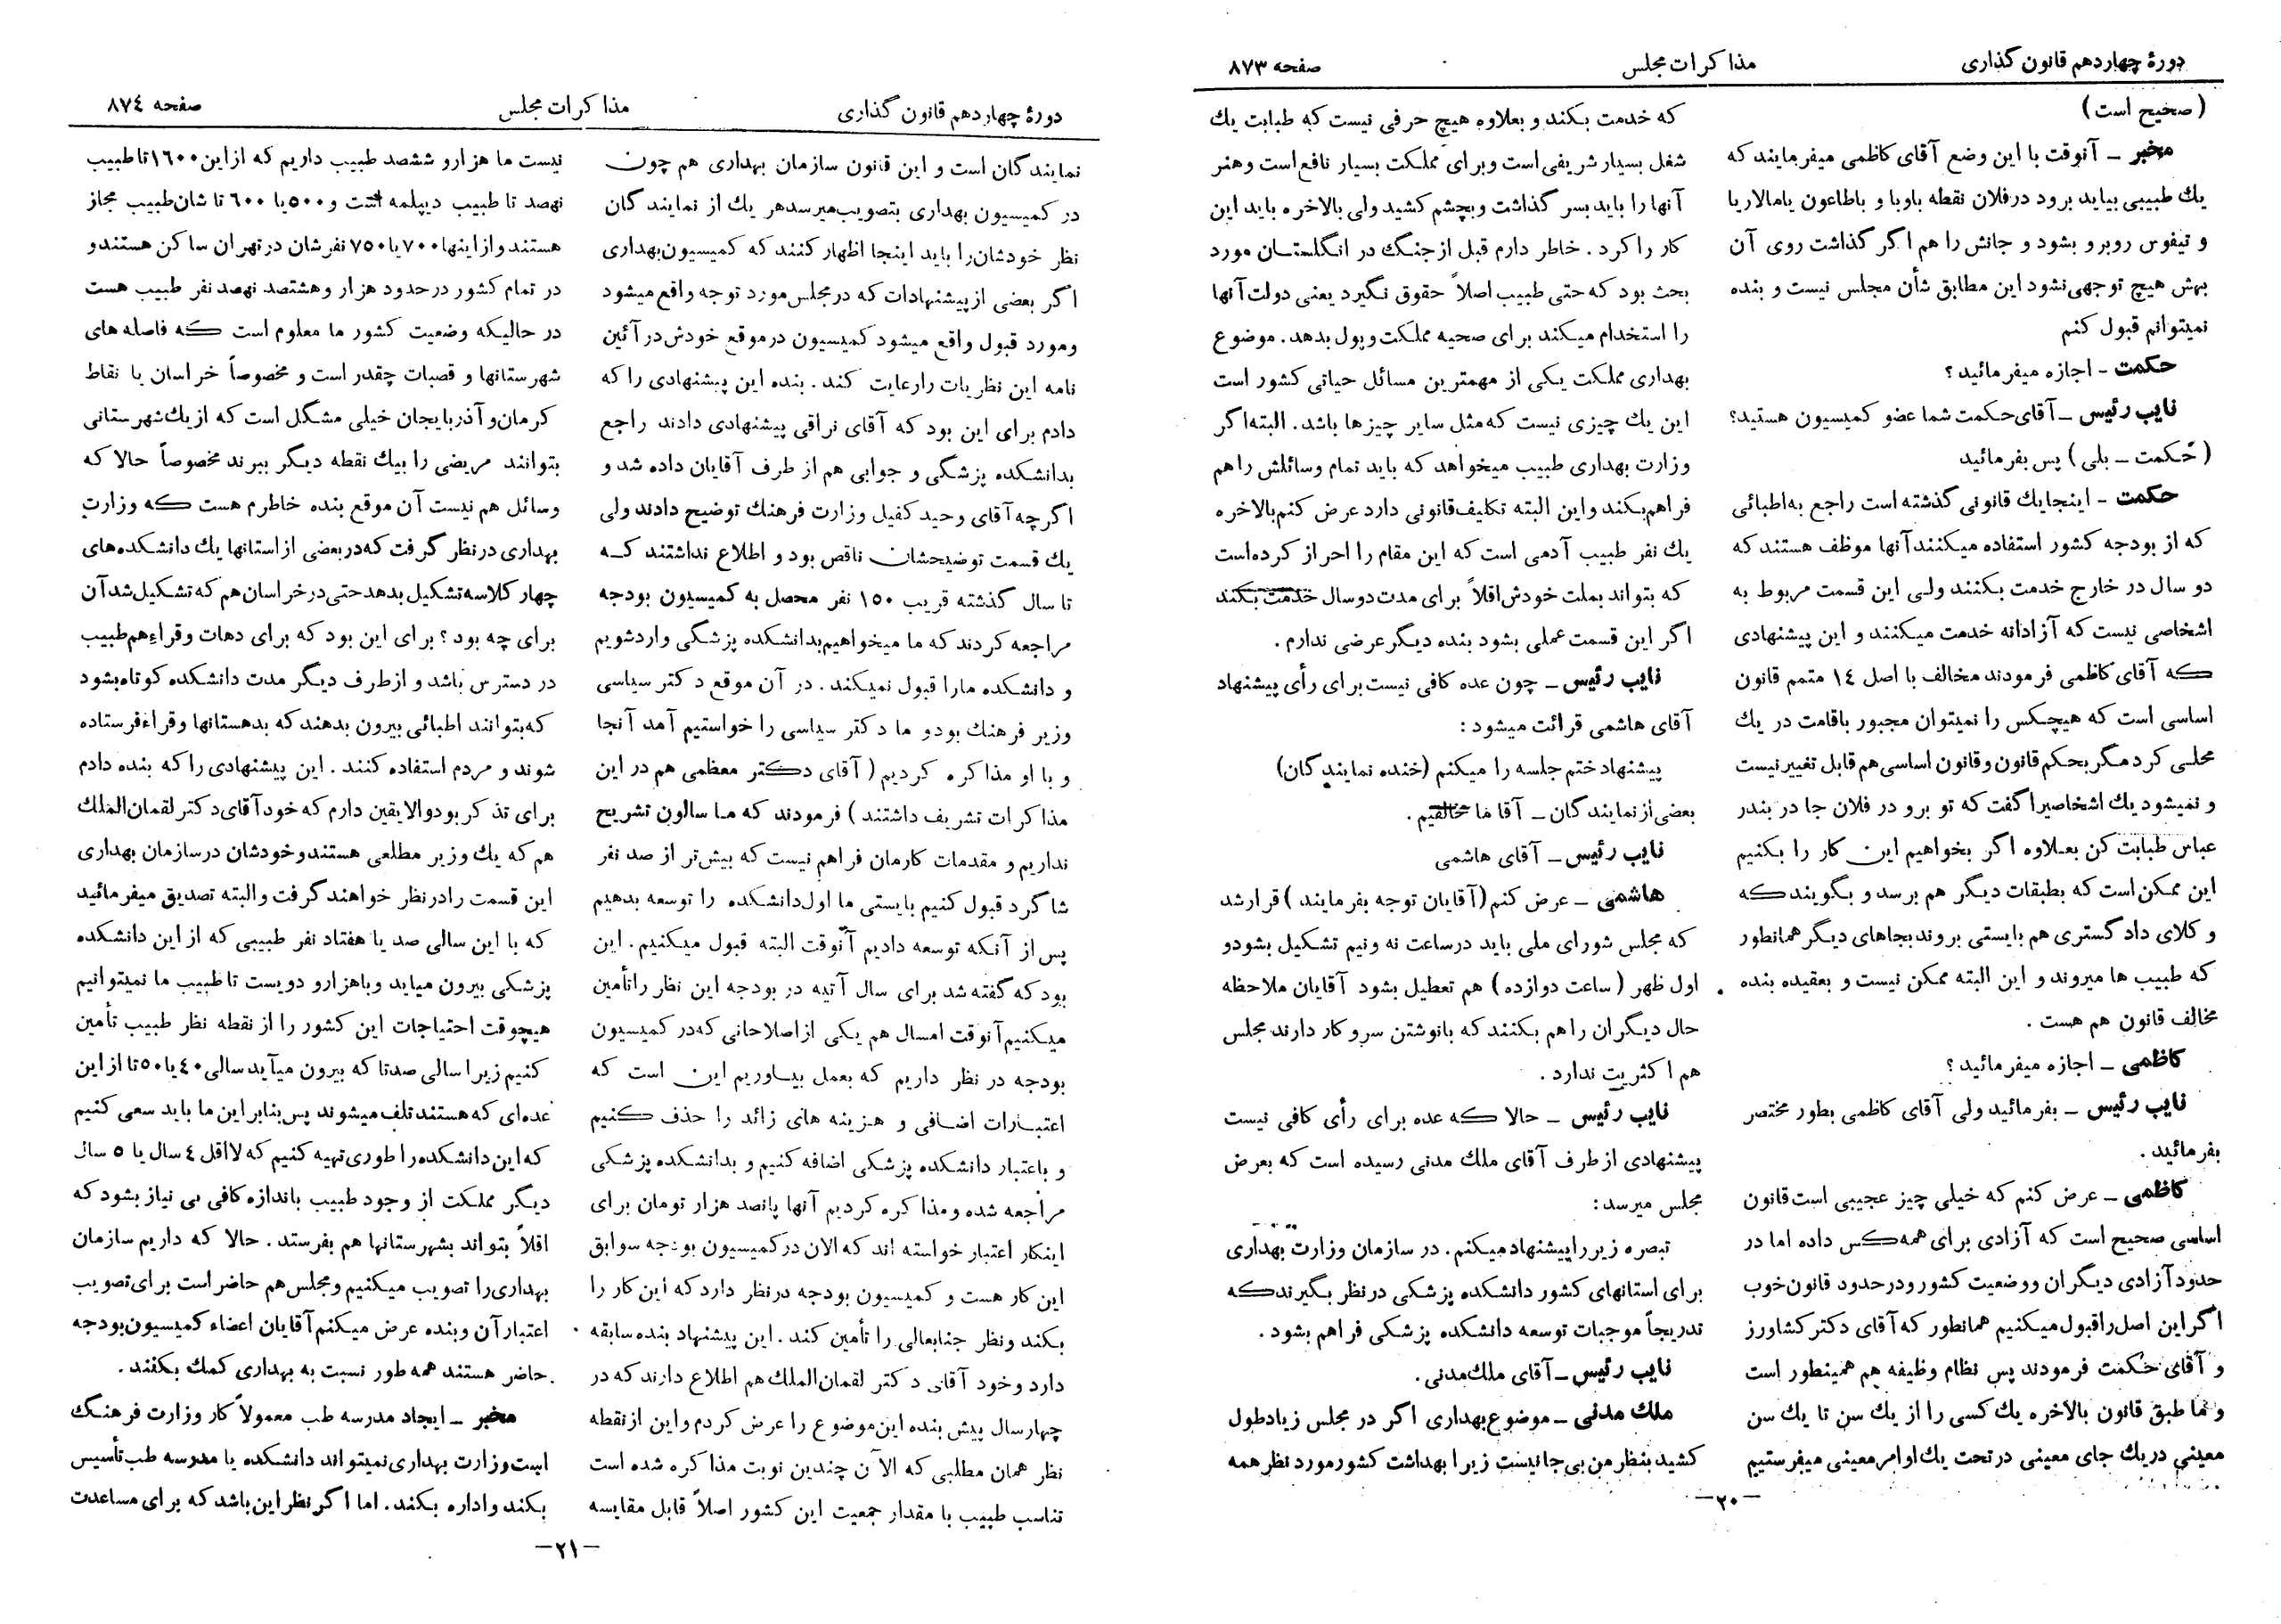 دورهٔ چهاردهم قانون گذاری
مذاکرات مجلس
صفحه ۸۷۳
(صحیح است)
مخبر ـ آنوقت با این وضع آقای کاظمی میفرمایند که
یك طبیبی بیاید برود درفلان نقطه باوبا و باطاعون یامالاریا
و تیفوس روبرو بشود و جانش را هم اگر گذاشت روی آن
بهش هیچ توجهی نشود این مطابق شأن مجلس نیست و بنده
نمیتوانم قبول کنم
حکمت ـ اجازه میفرمائید؟
نایب رئیس ـ آقای حکمت شما عضو کمیسیون هستید؟
(حکمت ـ بلی) پس بفرمائید
حکمت ـ اینجا یك قانونی گذشته است راجع به اطبائی
که از بودجه کشور استفاده میکنند آنها موظف هستند که
دو سال در خارج خدمت بکنند ولی این قسمت مربوط به
اشخاصی نیست که آزادانه خدمت میکنند و این پیشنهادی
که آقای کاظمی فرمودند مخالف با اصل ۱٤ متمم قانون
اساسی است که هیچکس را نمیتوان مجبور باقامت در یك
محلی کرد مگر بحکم قانون وقانون اساسی هم قابل تغییر نیست
و نمیشود یك اشخاصیرا گفت که تو برو در فلان جا در بندر
عباس طبابت کن بعلاوه اگر بخواهیم این کار را بکنیم
این ممکن است که بطبقات دیگر هم برسد و بگویند که
وکلای دادگستری هم بایستی بروند بجاهای دیگر همانطور
که طبیب ها میروند و این البته ممکن نیست و بعقیده بنده
مخالف قانون هم هست .
کاظمی ـ اجازه میفرمائید؟
نایب رئیس ـ بفرمائید ولی آقای کاظمی بطور مختصر
بفرمائید .
کاظمی ـ عرض کنم که خیلی چیز عجیبی است قانون
اساسی صحیح است که آزادی برای همه کس داده اما در
حدود آزادی دیگران ووضعیت کشور ودرحدود قانون خوب
اگر این اصل را قبول میکنیم همانطور که آقای دکتر کشاورز
و آقای حکمت فرمودند پس نظام وظیفه هم همینطور است
وما طبق قانون بالاخره یك کسی را از یك سن تا یك سن
معینی در یك جای معینی در تحت یك اوامر معینی میفرستیم
که خدمت بکند و بعلاوه هیچ حرفی نیست که طبابت یك
شغل بسیار شریفی است وبرای مملکت بسیار نافع است وهنر
آنها را باید بسر گذاشت وبچشم کشید ولی بالاخره باید این
کار را کرد . خاطر دارم قبل از جنگ در انگلستان مورد
بحث بود که حتی طبیب اصلاً حقوق نگیرد یعنی دولت آنها
را استخدام میکند برای صحیه مملکت وپول بدهد . موضوع
بهداری مملکت یکی از مهمترین مسائل حیاتی کشور است
این یك چیزی نیست که مثل سایر چیزها باشد . البته اگر
وزارت بهداری طبیب میخواهد که باید تمام وسائلش را هم
فراهم بکند واین البته تکلیف قانونی دارد عرض کنم بالاخره
یك نفر طبیب آدمی است که این مقام را احراز کرده است
که بتواند بملت خودش اقلاً برای مدت دوسال خدمت بکند
اگر این قسمت عملی بشود بنده دیگر عرضی ندارم .
نایب رئیس ـ چون عده کافی نیست برای رأی پیشنهاد
آقای هاشمی قرائت میشود :
پیشنهاد ختم جلسه را میکنم (خنده نمایندگان)
بعضی از نمایندگان ـ آقا ما مخالفیم .
نایب رئیس ـ آقای هاشمی
هاشمی ـ عرض کنم (آقایان توجه بفرمایند) قرار شد
که مجلس شورای ملی باید در ساعت نه ونیم تشکیل بشود و
اول ظهر (ساعت دوازده) هم تعطیل بشود آقایان ملاحظه
حال دیگران را هم بکنند که بانوشتن سروکار دارند مجلس
هم اکثریت ندارد .
نایب رئیس ـ حالا که عده برای رأی کافی نیست
پیشنهادی از طرف آقای ملك مدنی رسیده است که بعرض
مجلس میرسد :
تبصره زیر را پیشنهاد میکنم . در سازمان وزارت بهداری
برای استانهای کشور دانشکده پزشکی در نظر بگیرند که
تدریجاً موجبات توسعه دانشکده پزشکی فراهم بشود .
نایب رئیس ـ آقای ملك مدنی .
ملك مدنی ـ موضوع بهداری اگر در مجلس زیاد طول
کشید بنظر من بی جا نیست زیرا بهداشت کشور مورد نظر همه
ـ۲۰ـ
دورهٔ چهاردهم قانون گذاری
مذاکرات مجلس
صفحه ۸۷٤
نمایندگان است و این قانون سازمان بهداری هم چون
در کمیسیون بهداری بتصویب میرسد هر یك از نمایندگان
نظر خودشان را باید اینجا اظهار کنند که کمیسیون بهداری
اگر بعضی از پیشنهادات که در مجلس مورد توجه واقع میشود
ومورد قبول واقع میشود کمیسیون در موقع خودش در آئین
نامه این نظریات را رعایت کند . بنده این پیشنهادی را که
دادم برای این بود که آقای نراقی پیشنهادی دادند راجع
بدانشکده پزشگی و جوابی هم از طرف آقایان داده شد و
اگرچه آقای وحید کفیل وزارت فرهنك توضیح دادند ولی
یك قسمت توضیحشان ناقص بود و اطلاع نداشتند که
تا سال گذشته قریب ۱۵۰ نفر محصل به کمیسیون بودجه
مراجعه کردند که ما میخواهیم بدانشکده پزشگی وارد شویم
و دانشکده ما را قبول نمیکند . در آن موقع دکتر سیاسی
وزیر فرهنك بود و ما دکتر سیاسی را خواستیم آمد آنجا
و با او مذاکره کردیم (آقای دکتر معظمی هم در این
مذاکرات تشریف داشتند) فرمودند که ما سالون تشریح
نداریم و مقدمات کارمان فراهم نیست که بیش‌تر از صد نفر
شاگرد قبول کنیم بایستی ما اول دانشکده را توسعه بدهیم
پس از آنکه توسعه دادیم آنوقت البته قبول میکنیم . این
بود که گفته شد برای سال آتیه در بودجه این نظر را تأمین
میکنیم آنوقت امسال هم یکی از اصلاحاتی که در کمیسیون
بودجه در نظر داریم که بعمل بیاوریم این است که
اعتبارات اضافی و هزینه های زائد را حذف کنیم
و باعتبار دانشکده پزشکی اضافه کنیم و بدانشکده پزشکی
مراجعه شده ومذاکره کردیم آنها پانصد هزار تومان برای
اینکار اعتبار خواسته اند که الان در کمیسیون بودجه سوابق
این کار هست و کمیسیون بودجه در نظر دارد که این کار را
بکند ونظر جنابعالی را تأمین کند . این پیشنهاد بنده سابقه
دارد وخود آقای دکتر لقمان الملك هم اطلاع دارند که در
چهار سال پیش بنده این موضوع را عرض کردم واین از نقطه
نظر همان مطلبی که الآن چندین نوبت مذاکره شده است
تناسب طبیب با مقدار جمعیت این کشور اصلاً قابل مقایسه
نیست ما هزار و ششصد طبیب داریم که از این ۱۶۰۰ تا طبیب
نهصد تا طبیب دیپلمه است و ۵۰۰ یا ۶۰۰ تا شان طبیب مجاز
هستند و از اینها ۷۰۰ یا ۷۵۰ نفرشان در تهران ساکن هستند و
در تمام کشور در حدود هزار و هشتصد نهصد نفر طبیب هست
در حالیکه وضعیت کشور ما معلوم است که فاصله های
شهرستانها و قصبات چقدر است و مخصوصاً خراسان یا نقاط
کرمان و آذربایجان خیلی مشگل است که از یك شهرستانی
بتوانند مریضی را بیك نقطه دیگر ببرند مخصوصاً حالا که
وسائل هم نیست آن موقع بنده خاطرم هست که وزارت
بهداری در نظر گرفت که در بعضی از استانها یك دانشکده های
چهار کلاسه تشکیل بدهد حتی در خراسان هم که تشکیل شد آن
برای چه بود؟ برای این بود که برای دهات وقراء هم طبیب
در دسترس باشد و از طرف دیگر مدت دانشکده کوتاه بشود
که بتوانند اطبائی بیرون بدهند که بدهستانها وقراء فرستاده
شوند و مردم استفاده کنند . این پیشنهادی را که بنده دادم
برای تذکر بود والا یقین دارم که خود آقای دکتر لقمان الملك
هم که یك وزیر مطلعی هستند و خودشان در سازمان بهداری
این قسمت را در نظر خواهند گرفت والبته تصدیق میفرمائید
که با این سالی صد یا هفتاد نفر طبیبی که از این دانشکده
پزشکی بیرون میاید و با هزار و دویست تا طبیب ما نمیتوانیم
هیچوقت احتیاجات این کشور را از نقطه نظر طبیب تأمین
کنیم زیرا سالی صد تا که بیرون میآید سالی ٤۰ یا ۵۰ تا از این
عده ای که هستند تلف میشوند پس بنابر این ما باید سعی کنیم
که این دانشکده را طوری تهیه کنیم که لااقل ٤ سال یا ۵ سال
دیگر مملکت از وجود طبیب باندازه کافی بی نیاز بشود که
اقلاً بتواند بشهرستانها هم بفرستد . حالا که داریم سازمان
بهداری را تصویب میکنیم و مجلس هم حاضر است برای تصویب
اعتبار آن وبنده عرض میکنم آقایان اعضاء کمیسیون بودجه
حاضر هستند همه طور نسبت به بهداری کمك بکنند .
مخبر ـ ایجاد مدرسه طب معمولاً کار وزارت فرهنگ
است وزارت بهداری نمیتواند دانشکده یا مدرسه طب تأسیس
بکند واداره بکند . اما اگر نظر این باشد که برای مساعدت
ـ۲۱ـ